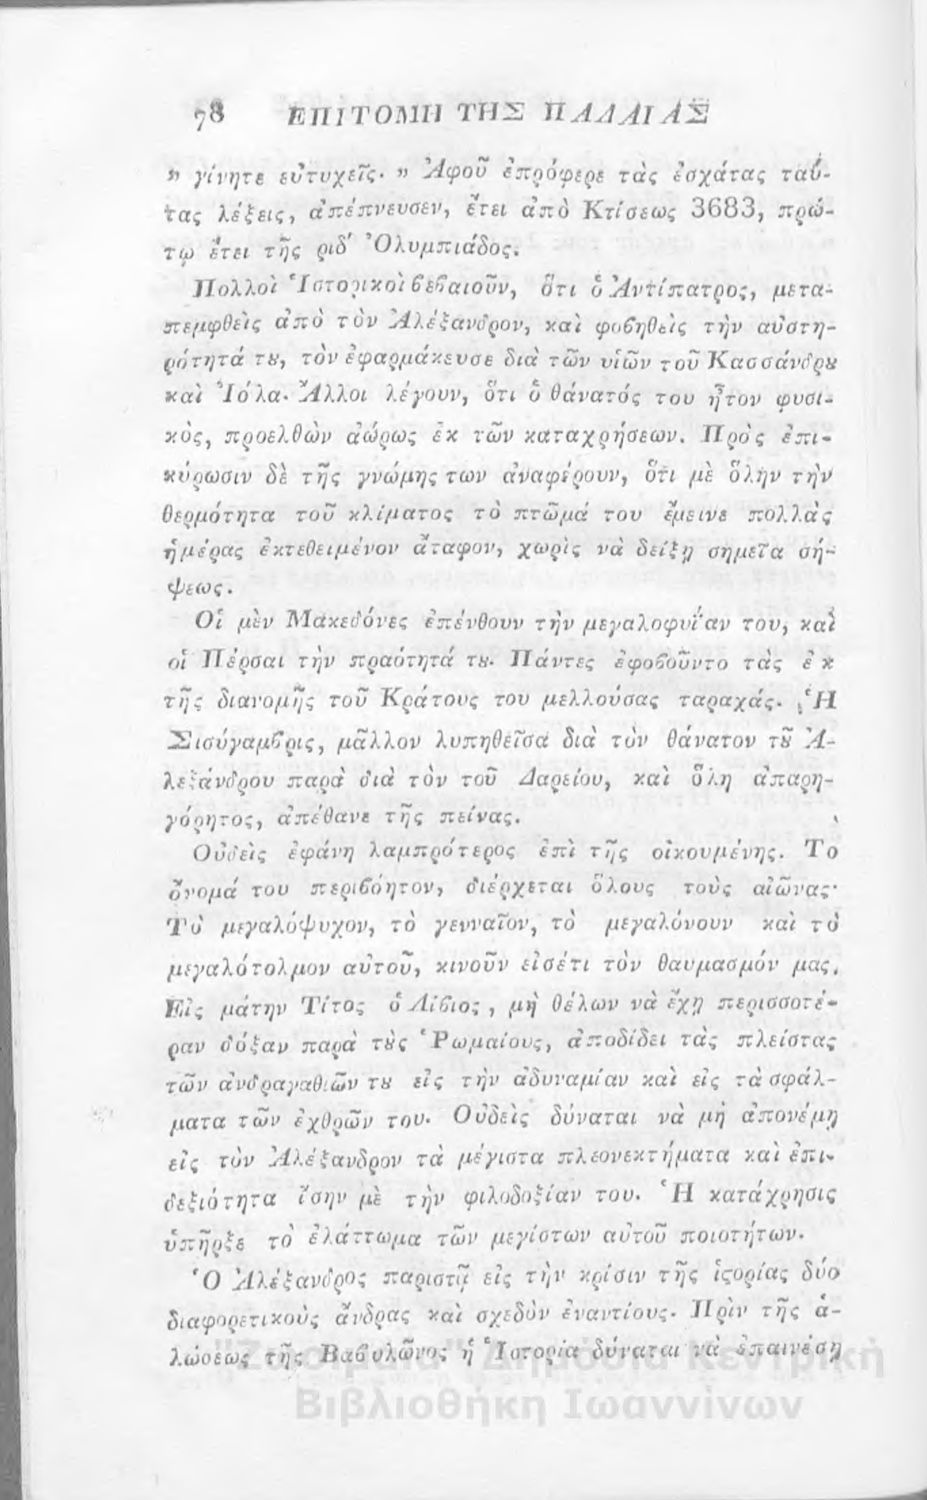 78 ΕΠΙΤΟΜΗ ΤΗΣ ΠΑΛΑΙΑΣ
» γίνητε εὐτυχεῖς· » Ἀφοῦ ἐπρόφερε τὰς ἐσχάτας ταύ-
τας λέξεις, ἀπέπνευσεν, ἔτει ἀπὸ Κτίσεως 3683, πρώ-
τῳ ἔτει τῆς ριδ΄ Ὀλυμπιάδος.
Πολλοὶ Ἱστορικοὶ βεβαιοῦν, ὅτι ὁ Ἀντίπατρος, μετα-
πεμφθεὶς ἀπὸ τὸν Ἀλέξανδρον, καὶ φοβηθεὶς τὴν αὐστη-
ρότητά τȣ, τὸν ἐφαρμάκευσε διὰ τῶν υἱῶν τοῦ Κασσάνδρȣ
καὶ Ἰόλα· Ἄλλοι λέγουν, ὅτι ὁ θάνατός του ἦτον φυσι-
κὸς, προελθὼν ἀώρως ἐκ τῶν καταχρήσεων. Πρὸς ἐπι-
κύρωσιν δὲ τῆς γνώμης των ἀναφέρουν, ὅτι μὲ ὅλην τὴν
θερμότητα τοῦ κλίματος τὸ πτῶμά του ἔμεινε πολλὰς
ἡμέρας ἐκτεθειμένον ἄταφον, χωρὶς νὰ δείξῃ σημεῖα σή-
ψεως.
Οἱ μὲν Μακεδόνες ἐπένθουν τὴν μεγαλοφυΐαν του, καὶ
οἱ Πέρσαι τὴν πραότητά τȣ· Πάντες ἐφοβοῦντο τὰς ἐκ
τῆς διανομῆς τοῦ Κράτους του μελλούσας ταραχάς. Ἡ
Σισύγαμβρις, μᾶλλον λυπηθεῖσα διὰ τὸν θάνατον τȣ͂ Ἀ-
λεξάνδρου παρὰ διὰ τὸν τοῦ Δαρείου, καὶ ὅλη ἀπαρη-
γόρητος, ἀπέθανε τῆς πείνας.
Οὐδεὶς ἐφάνη λαμπρότερος ἐπὶ τῆς οἰκουμένης. Το
ὄνομά του περιβόητον, διέρχεται ὅλους τοὺς αἰῶνας·
Τὸ μεγαλόψυχον, τὸ γενναῖον, τὸ μεγαλόνουν καὶ τὸ
μεγαλότολμον αὐτοῦ, κινοῦν εἰσέτι τὸν θαυμασμόν μας.
Εἰς μάτην Τίτος ὁ Λίβιος, μὴ θέλων νὰ ἔχῃ περισσοτέ-
ραν δόξαν παρὰ τȣ̀ς Ῥωμαίους, ἀποδίδει τὰς πλείστας
τῶν ἀνδραγαθιῶν τȣ εἰς τὴν ἀδυναμίαν καὶ εἰς τὰ σφάλ-
ματα τῶν ἐχθρῶν του· Οὐδεὶς δύναται νὰ μὴ ἀπονέμῃ
εἰς τὸν Ἀλέξανδρον τὰ μέγιστα πλεονεκτήματα καὶ ἐπι-
δεξιότητα ἴσην μὲ τὴν φιλοδοξίαν του. Ἡ κατάχρησις
ὑπῆρξε τὸ ἐλάττωμα τῶν μεγίστων αὐτοῦ ποιοτήτων.
Ὁ Ἀλέξανδρος παριστᾷ εἰς τὴν κρίσιν τῆς ἱϛορίας δύο
διαφορετικοὺς ἄνδρας καὶ σχεδὸν ἐναντίους· Πρὶν τῆς ἁ-
λώσεως τῆς Βαβυλῶνος ἡ Ἱστορία δύναται νὰ ἐπαινέσῃ
"Ζωσιμαία" Δημόσια Κεντρική
Βιβλιοθήκη Ιωαννίνων